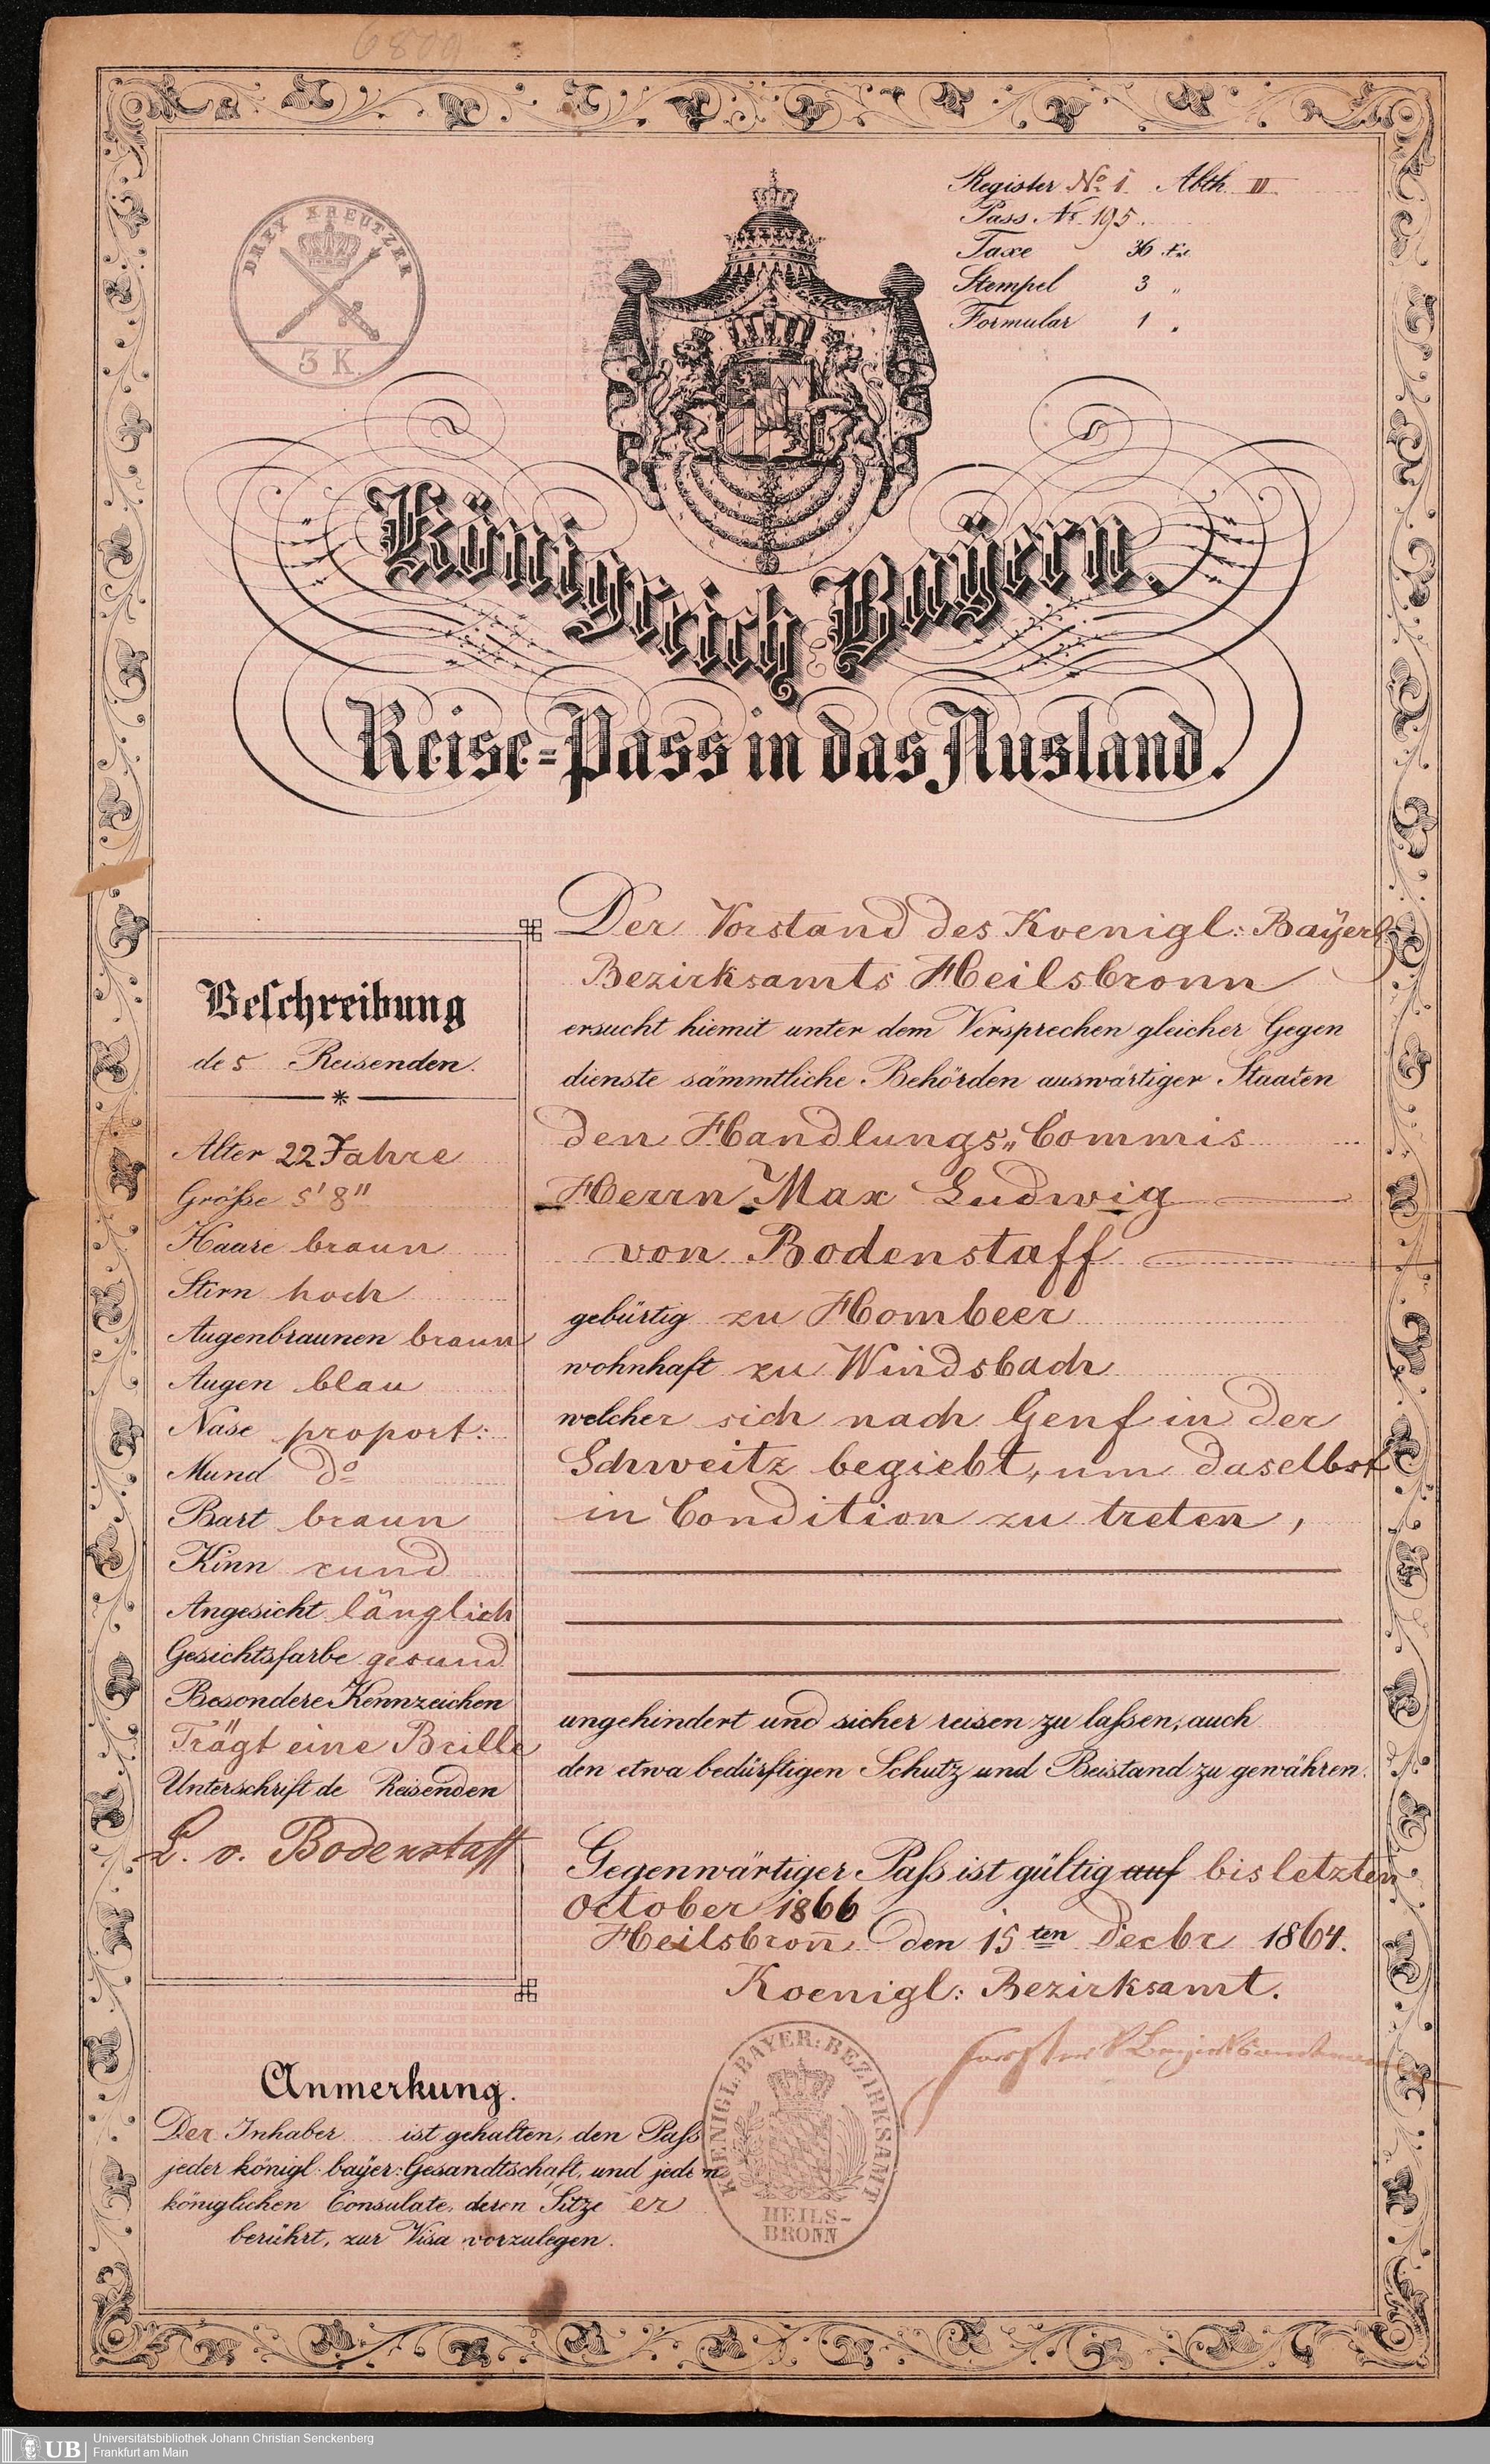 6800
DREY KREUTZER
3 K.
Register No. 1. Abth II
Pass. Nr. 195.
Taxe 36 kr.
Stempel 3 „
Formular 1 „
Königreich Bayern.
Reise-Pass in das Ausland.
Der Vorstand des Koenigl: Bayerl
Bezirksamts Heilsbronn
ersucht hiemit unter dem Versprechen gleicher Gegen
dienste sämmtliche Behörden auswärtiger Staaten
den Handlungs„Commis
Herrn Max Ludwig
von Bodenstaff
gebürtig zu Hombeer
wohnhaft zu Windsbach
welcher sich nach Genf in der
Schweitz begiebt, um daselbst
in Condition zu treten,
ungehindert und sicher reisen zu laßen, auch
den etwa bedürftigen Schutz und Beistand zu gewähren.
Gegenwärtiger Paß ist gültig auf bis letzten
October 1866
Heilsbron̄ den 15ten Decbr 1864.
Koenigl: Bezirksamt.
Beschreibung
des Reisenden.
Alter 22 Jahre
Größe 5' 8"
Haare braun
Stirn hoch
Augenbraunen braun
Augen blau
Nase proport:
Mund do
Bart braun
Kinn rund
Angesicht länglich
Gesichtsfarbe gesund
Besondere Kennzeichen
Trägt eine Brille
Unterschrift de Reisenden
L. v. Bodenstaff
Anmerkung.
Der Inhaber ist gehalten, den Paß
jeder königl: bayer: Gesandtschaft, und jedem
königlichen Consulate, deren Sitze er
berührt, zur Visa vorzulegen.
KOENIGL. BAYER: BEZIRKSAMT
HEILS-
BRONN
UB
Universitätsbibliothek Johann Christian Senckenberg
Frankfurt am Main